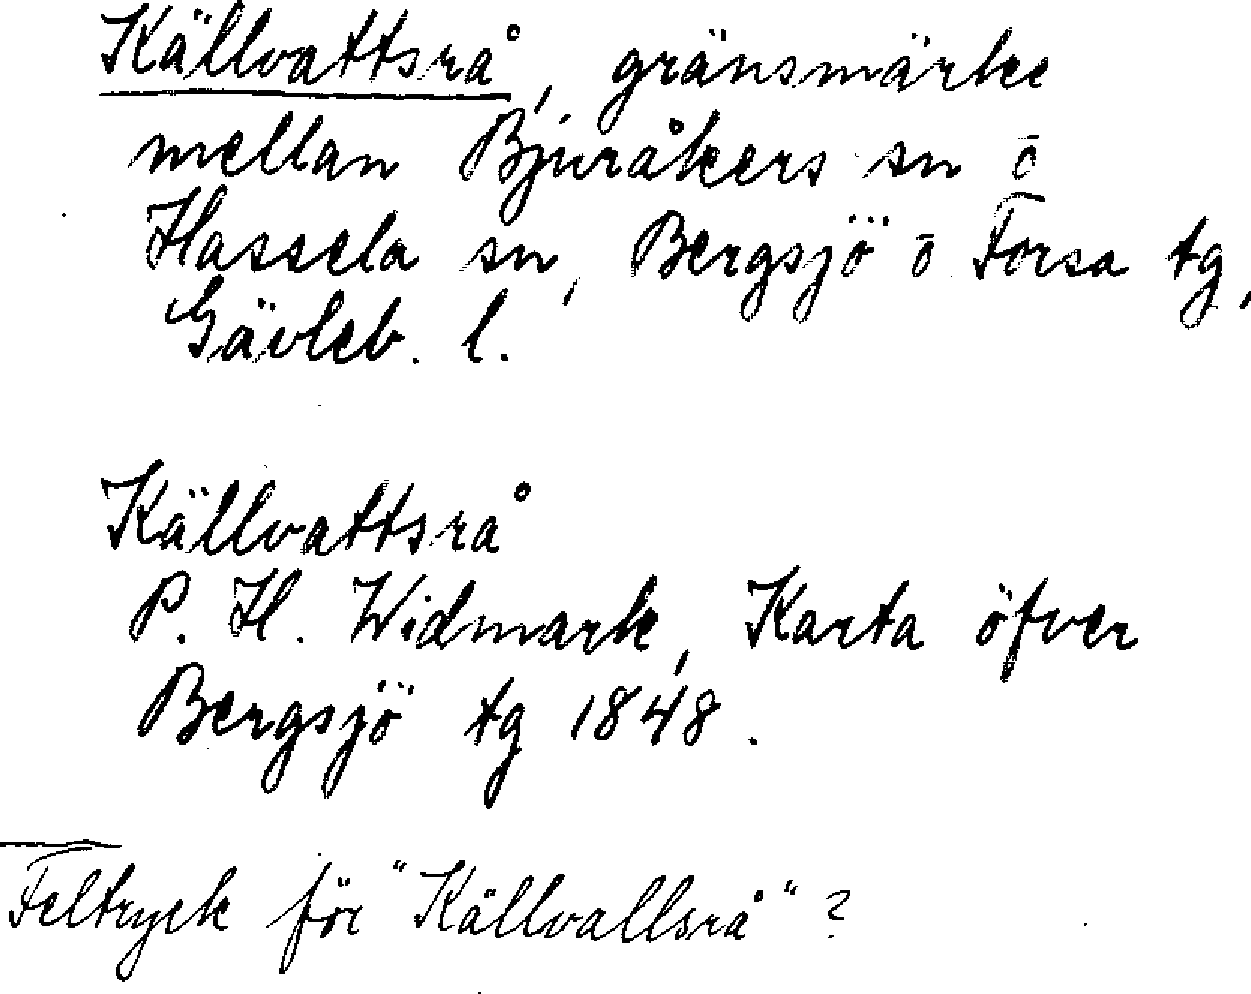 Källvattsrå, gränsmärke
mellan Bjuråkers sn ō
Hassela sn, Bergsjö ō Forsa tg,
Gävleb. l.
Källvattsrå
P. H. Widmark, Karta öfver
Bergsjö tg 1848.
Feltryck för "Källvallsrå"?